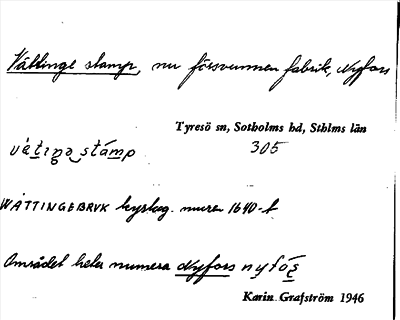 Vättinge stamp, nu försvunnen fabrik, Nyfors
Tyresö sn, Sotholms hd, Sthlms län
305
vätiŋə stámp
WÄTTINGEBRUK byslag. muren 1640-t
Området heter numera Nyfors nyfó̱s̱
Karin Grafström 1946